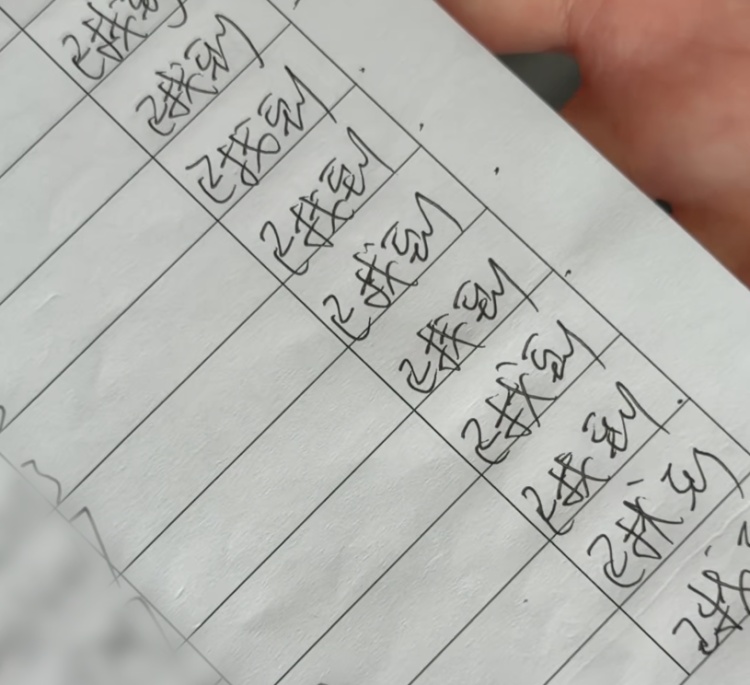 已找到
已找到
已找到
已找到
已找到
已找到
已找到
已找到
已找到
已找